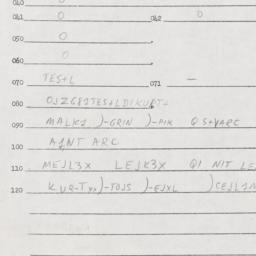 040 0
041 0 042 0
050 0
060 0
070 TES+L 071 —
080 OJZG81TES+LDIKURT+
090 MALKJ )-GRIN )-PIK QS+YARC
100 A1NT ARC
110 MEJL3X LEJK3X QI NIT LE
120 )-TOJS )-EJXL